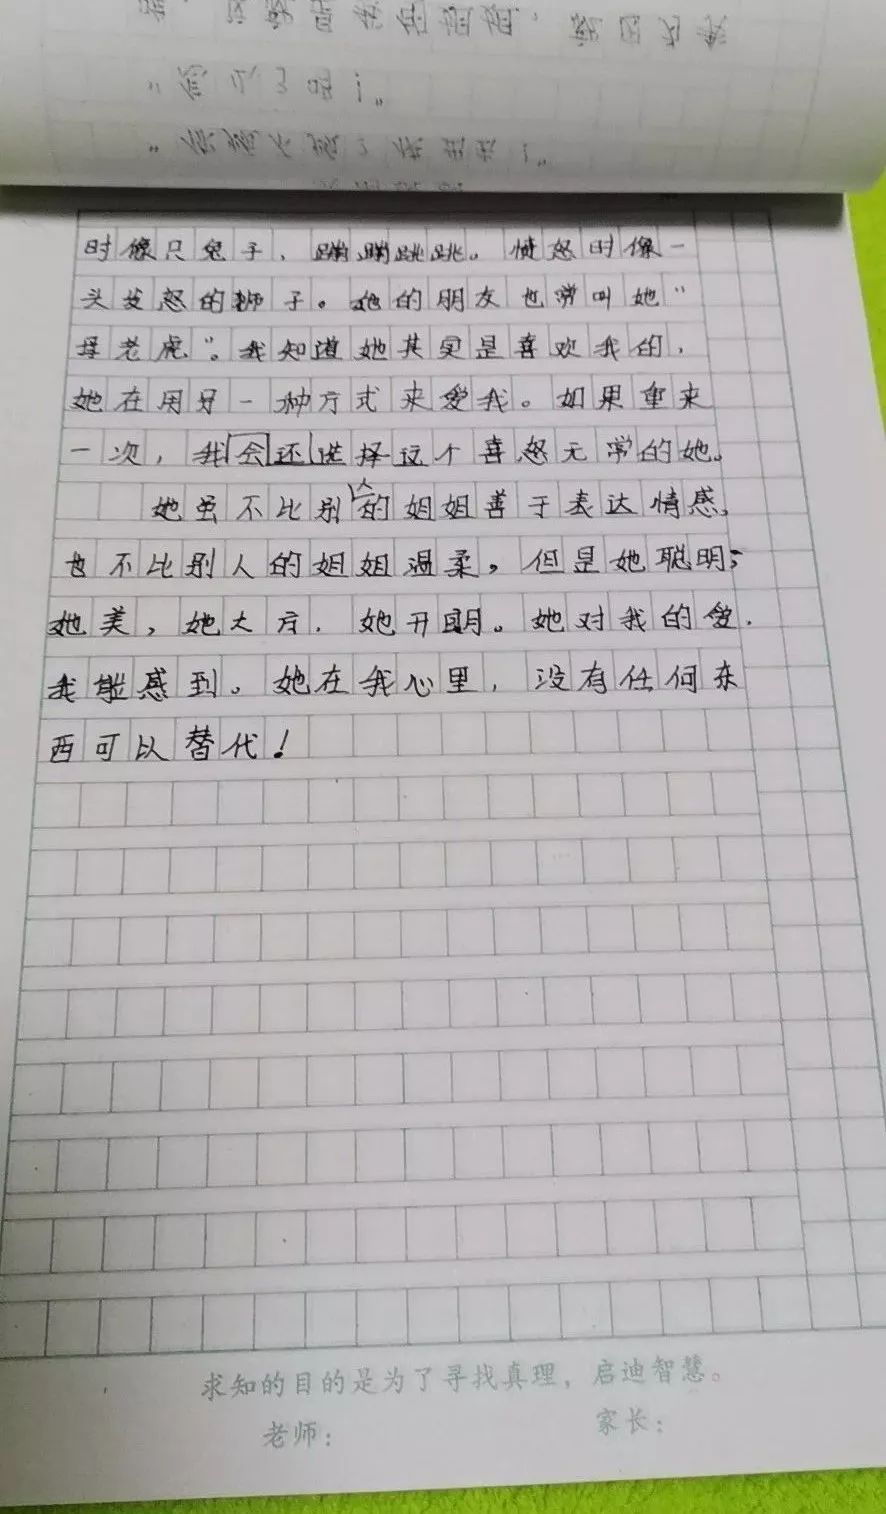 时像只兔子，蹦蹦跳跳。愤怒时像一
头发怒的狮子。她的朋友也常叫她“
母老虎”。我知道她其实是喜欢我的，
她在用另一种方式来爱我。如果重来
一次，我会还选择这个喜怒无常的她。
她虽不比别人的姐姐善于表达情感，
也不比别人的姐姐温柔，但是她聪明，
她美，她大方，她开朗。她对我的爱，
我能感到。她在我心里，没有任何东
西可以替代！
求知的目的是为了寻找真理，启迪智慧。
老师： 家长：